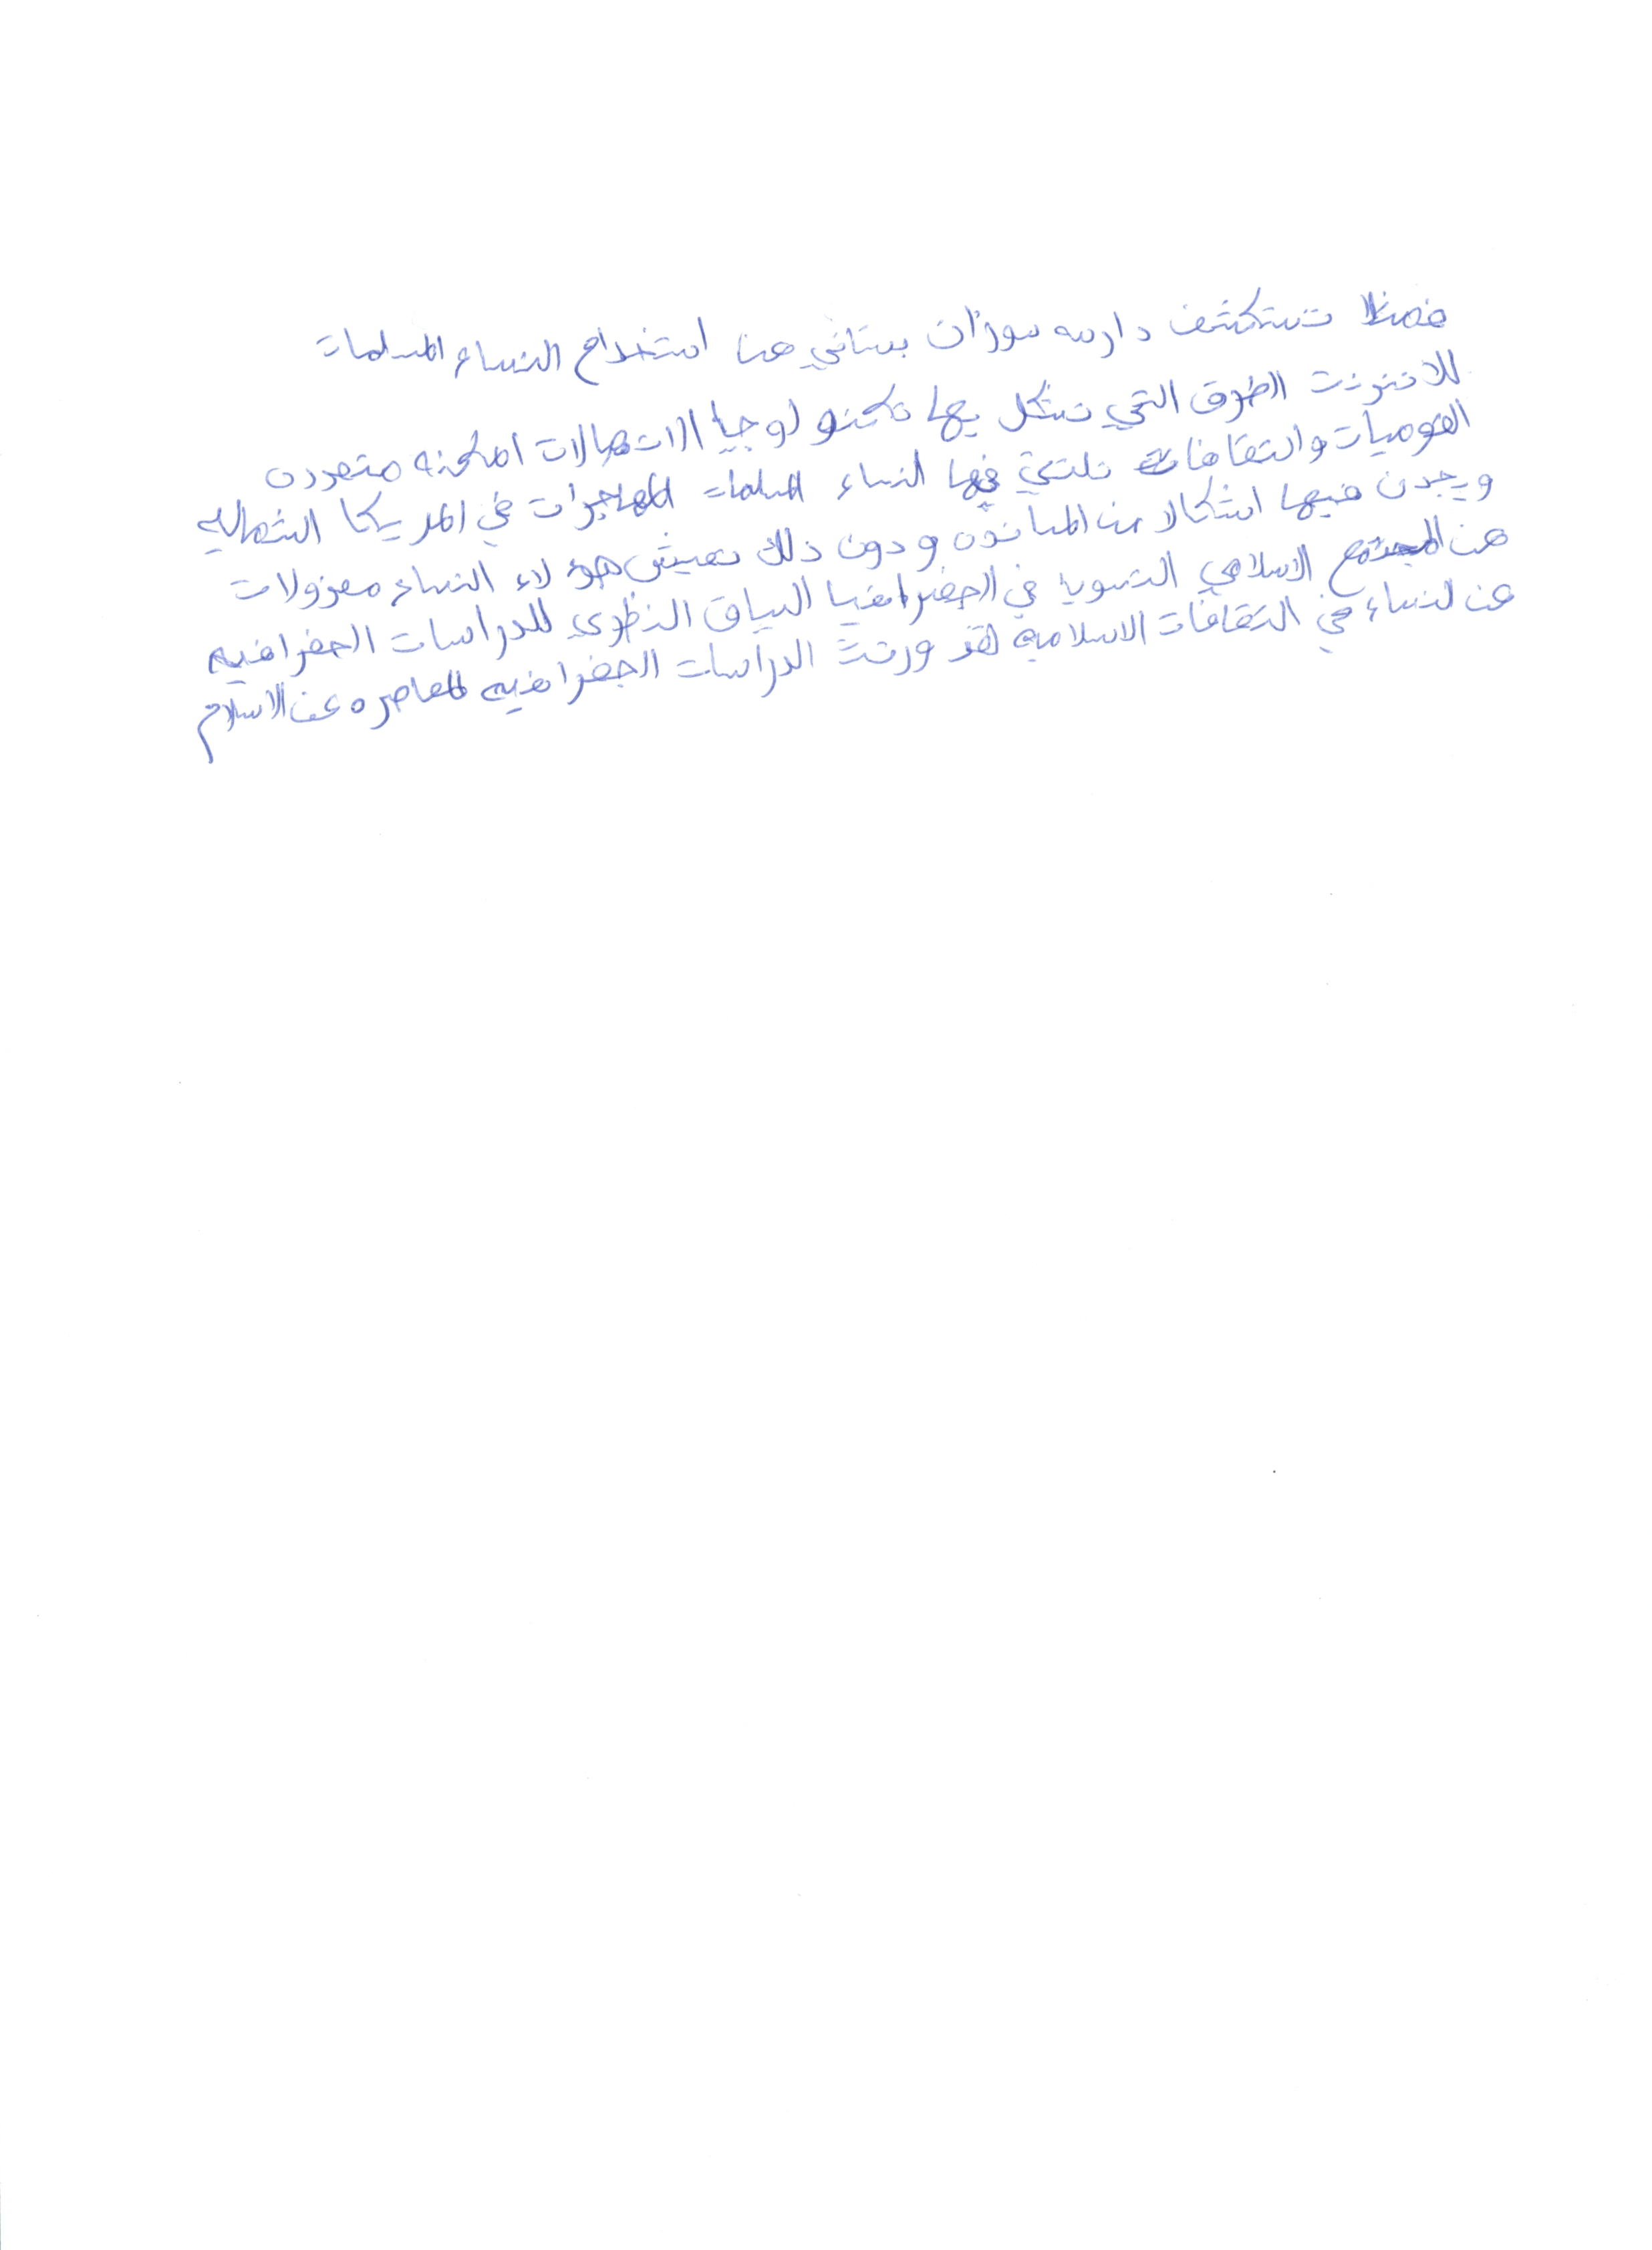 فضلا تستكشف دارسه سوزان بستاني هنا استخدام النساء المسلمات
للانترنت الطرق التي تشكل بها تكنولوجيا الاتصالات امكنه متعددت
القوميات والثقافات تلتقي فيها النساء المسلمات المهاجرات في امريكا الشماليه
ويجدن فيها اشكالا من المساندن ودون ذلك تعيش هؤلاء النساء معزولات
عن المجتمع الاسلامي النسويا في الجغرافيا السياق النظري للدراسات الجغرافيه
عن لنساء في الثقافات الاسلاميه لقد ورثت الدراسات الجغرافيه المعاصره عن الاسلام